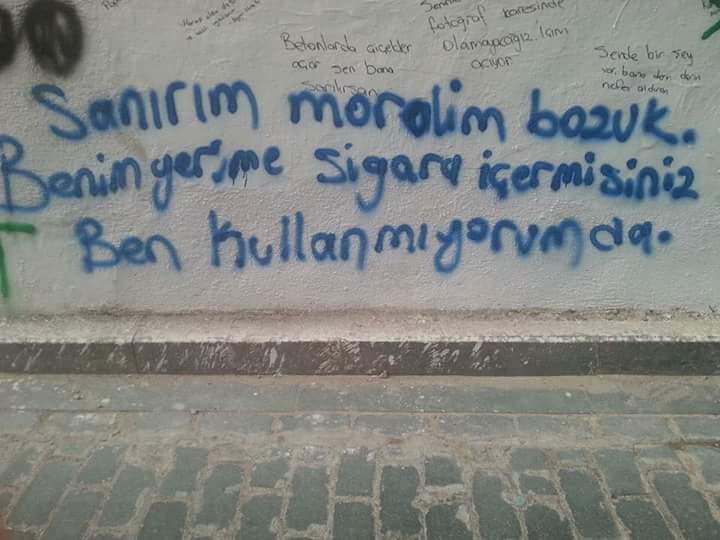 fotoğraf karesinde
olamayacağız. İçim
acıyor
Betonlarda çiçekler
açar sen bana
sarılırsan
Sende bir şey
var, bana derin derin
nefes aldıran
Sanırım moralim bozuk.
Benim yerime sigara içermisiniz
Ben kullanmıyorumda.